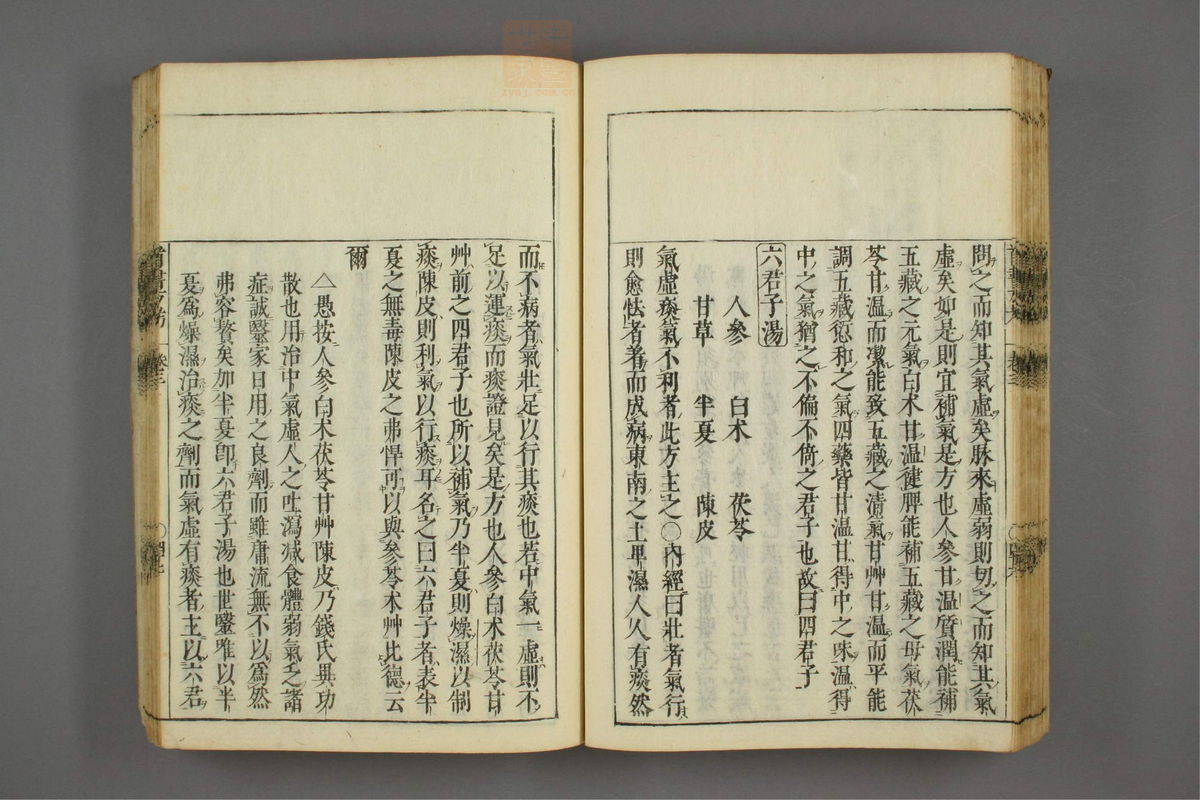 問之而知其氣虛矣脉來虛弱則切之而知其氣
虛矣如是則宜補氣是方也人參甘温質潤能補
五藏之元氣白术甘温健脾能補五藏之母氣茯
苓甘温而潔能致五藏之清氣甘艸甘温而平能
調五藏愆和之氣四藥皆甘温甘得中之味温得
中之氣猶之不偏不倚之君子也故曰四君子
六君子湯
人參 白术 茯苓
甘草 半夏 陳皮
氣虛痰氣不利者此方主之○內經曰壯者氣行
則愈怯者著而成病東南之土卑濕人人有痰然
而不病者氣壯足以行其痰也若中氣一虛則不
足以運痰而痰證見矣是方也人參白术茯苓甘
艸前之四君子也所以補氣乃半夏則燥濕以制
痰陳皮則利氣以行痰耳名之曰六君子者表半
夏之無毒陳皮之弗悍可以與參苓术艸比德云
爾
△愚按人參白术茯苓甘艸陳皮乃錢氏異功
散也用治中氣虛人之吐瀉減食體弱氣乏諸
症誠醫家日用之良劑而雖庸流無不以爲然
弗容贅矣加半夏卽六君子湯也世醫唯以半
夏爲燥濕治痰之劑而氣虛有痰者主以六君